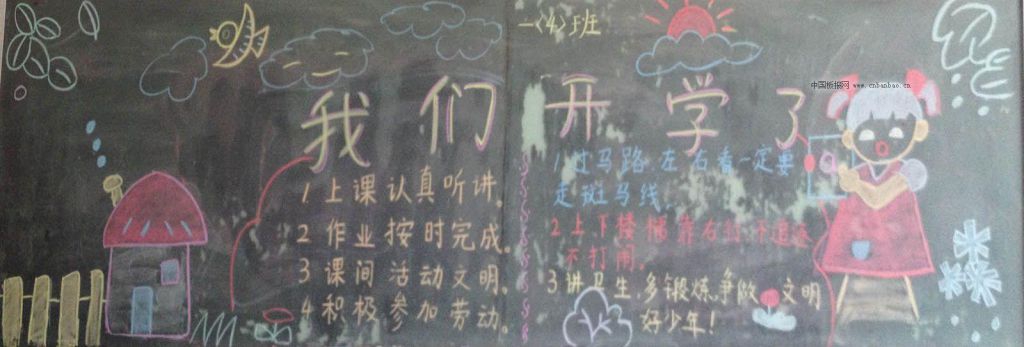 一〈4〉班
中国板报网 www.cnbanbao.cn
我们开学了
1 上课认真听讲。
2 作业按时完成。
3 课间活动文明。
4 积极参加劳动。
1 过马路左右看一定要
走斑马线.
2 上下楼梯靠右行不追逐
不打闹。
3 讲卫生.多锻炼.争做 文明
好少年!